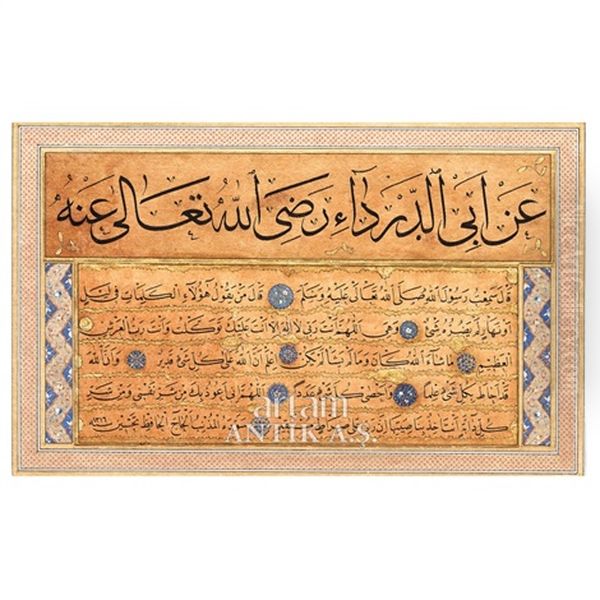 عن ابى الدرداء رضى الله تعالى عنه
قال سمعت رسول الله صلى الله تعالى عليه وسلم قال من يقول هؤلاء الكلمات فى ليل
او نهار لم يضره شئ وهى اللهم انت ربى لا اله الا انت عليك توكلت وانت رب العرش
العظيم ما شاء الله كان وما لم يشأ لم يكن اعلم ان الله على كل شئ قدير وان الله
قد احاط بكل شئ علما واحصى كل شئ عددا اللهم انى اعوذ بك من شر نفسى ومن شر
كل دابة انت آخذ بناصيتها ان ربى على صراط المذنب الحاج الحافظ تحسين
artam
ANTİK A.Ş.